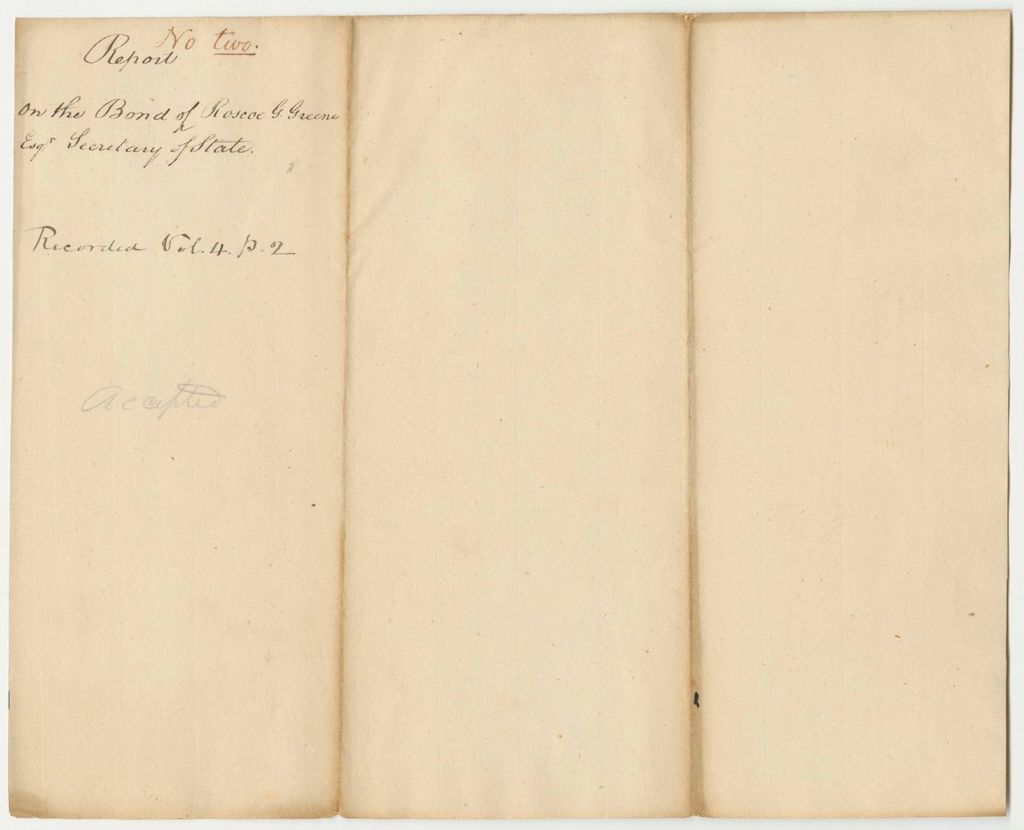 No two.
Report
On the Bond of Roscoe G. Greene
Esqr Secretary of State.
Recorded Vol. 4. p. 2
Accepted